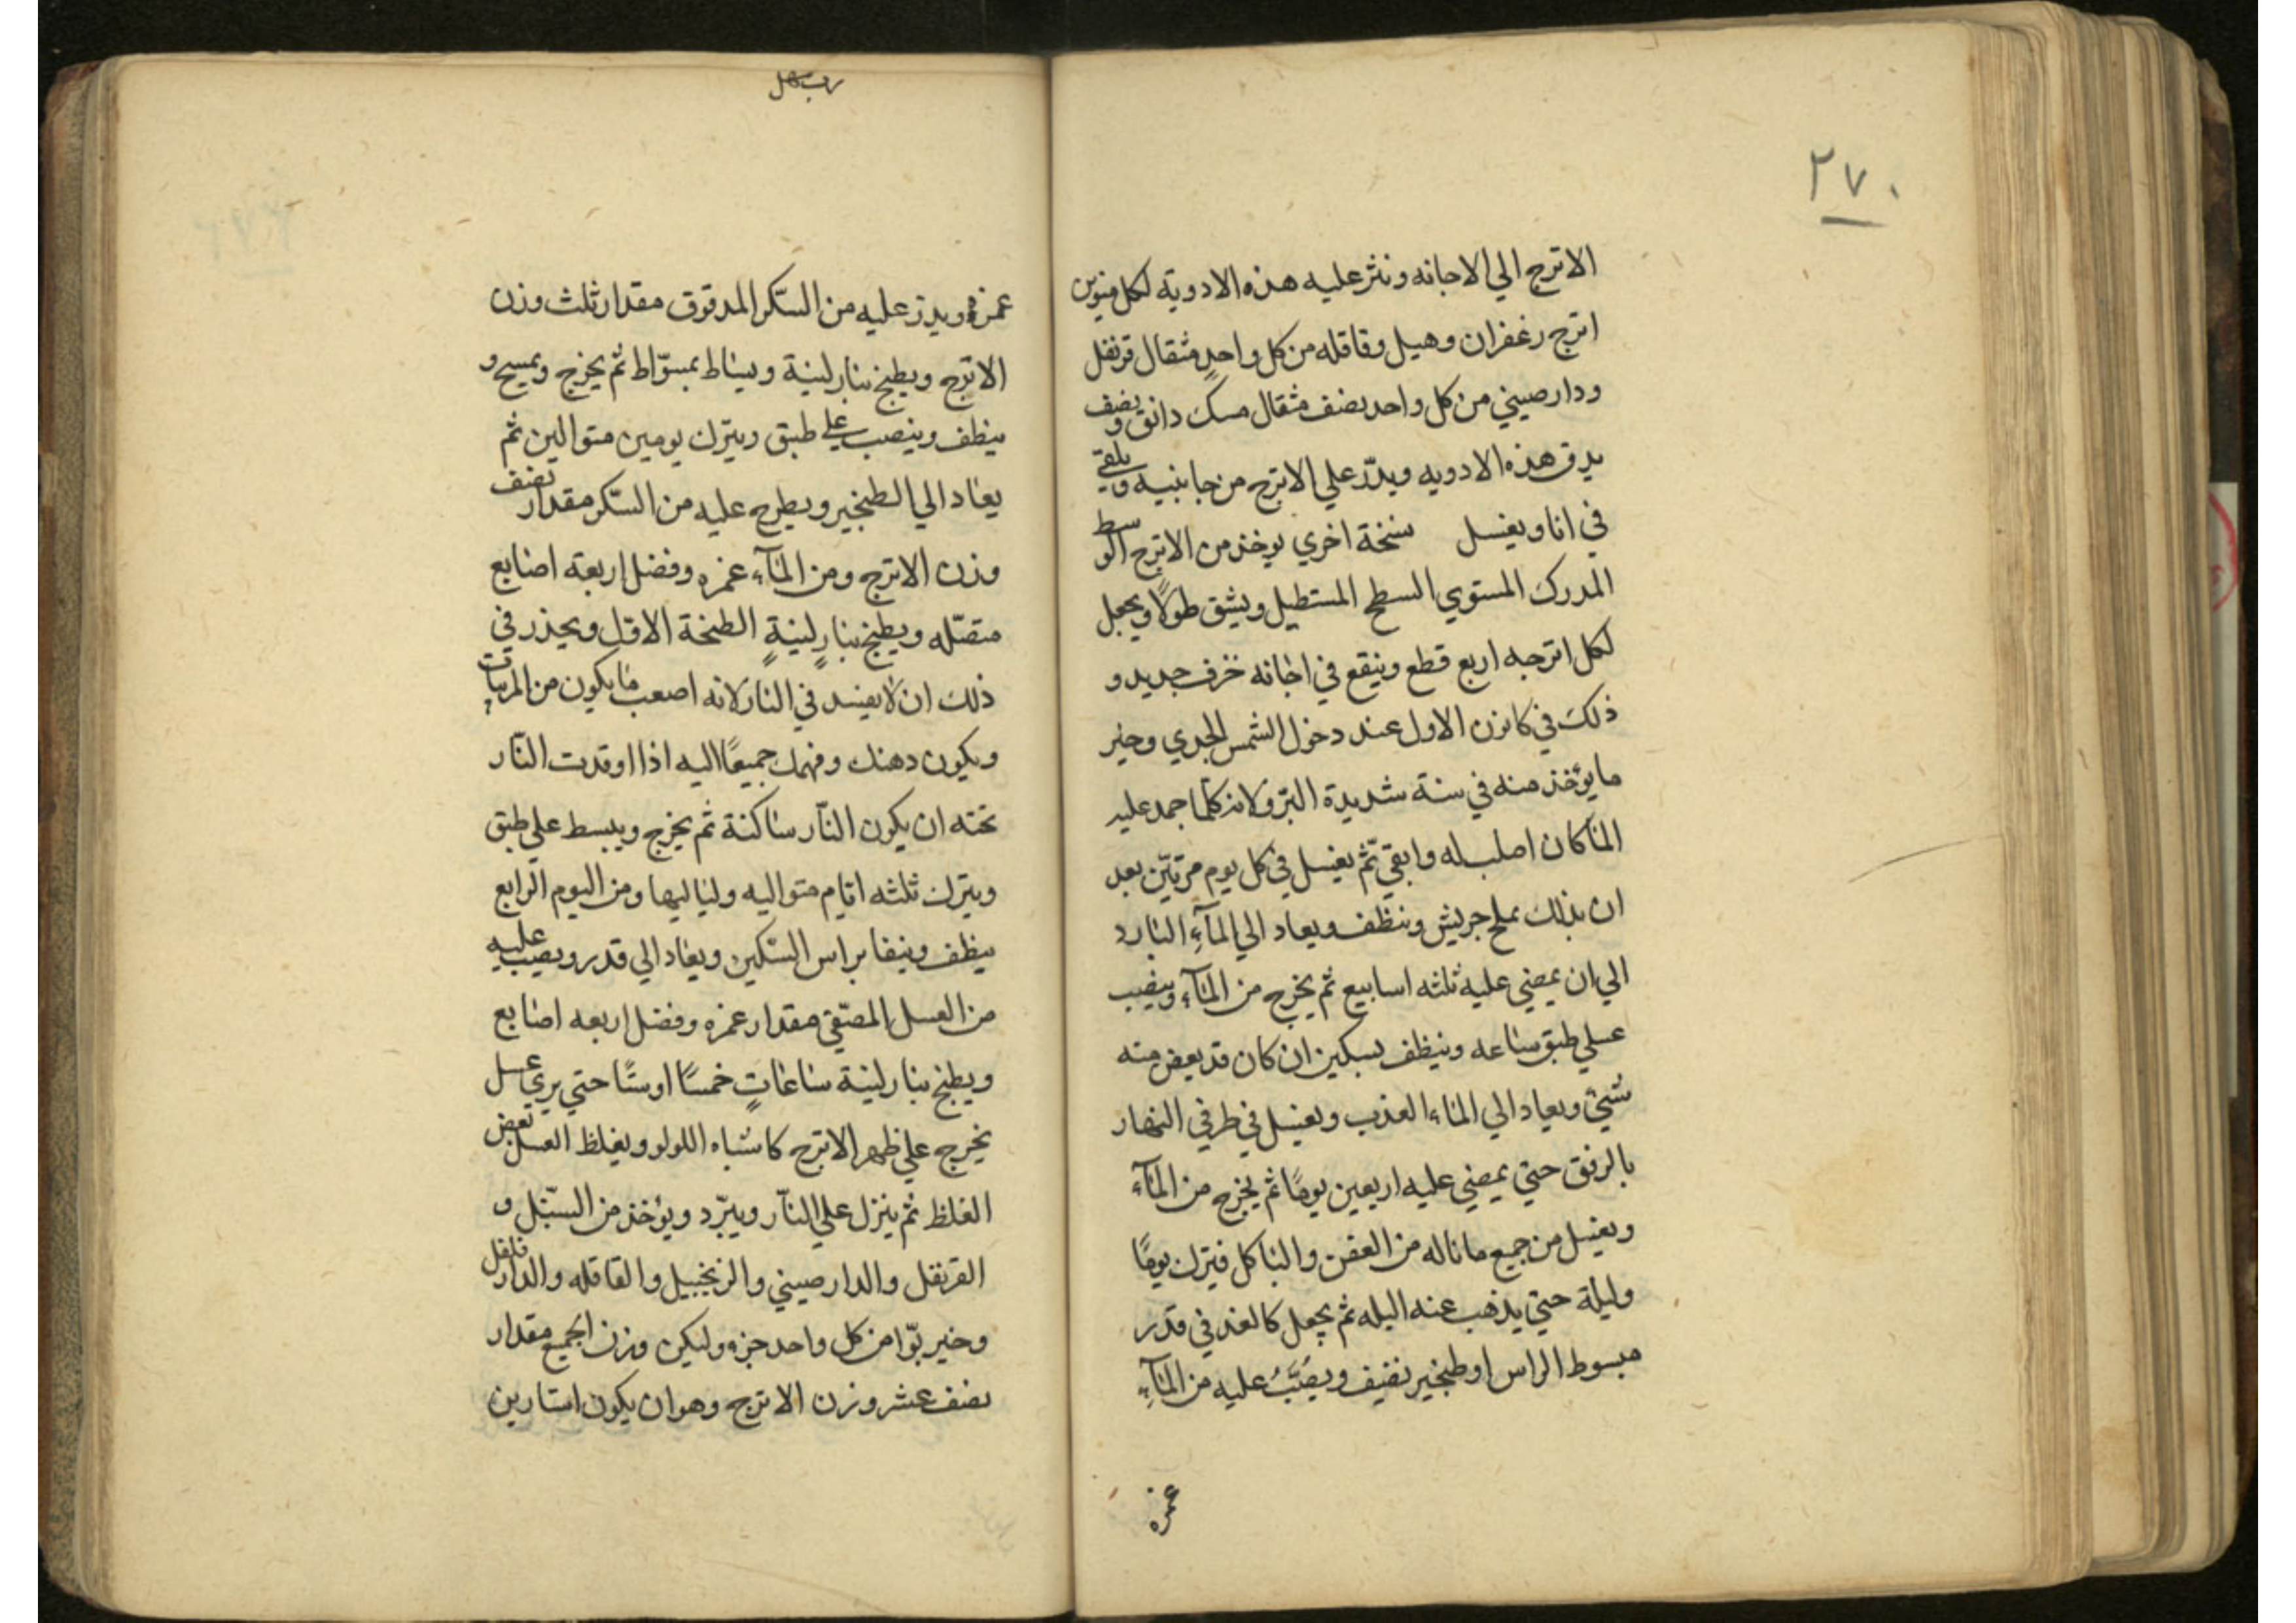 ٢٧٠
الاترج الي الاجانه ونثر عليه هذه الادوية لكل منوين
اترج زغفران وهيل وقاقله من كل واحدٍ مثقال قرنفل
ودارصيني من كل واحد نصف مثقال مسك دانق ونصف
يدق هذه الادويه ويذر علي الاترج من جانبيه ويلقي
في انا ويغسل نسخة اخري يوخذ من الاترج الوسط
المدرك المستوي السطح المستطيل ويشق طولًا ويجعل
لكل اترجه اربع قطع وينقع في اجانه خزف جديد و
ذلك في كانون الاول عند دخول الشمس الجدي وخير
ما يؤخذ منه في سنة شديدة البرد لانه كلما جمد عليه
الماء كان اصلب له وابقي ثم يغسل في كل يوم مرتين بعد
ان يدلك بملح جريش وينظف ويعاد الي المآءِ البارد
الي ان يمضي عليه ثلثه اسابيع ثم يخرج من المآءِ وينصب
علي طبق ساعه وينظف بسكين ان كان قد يعض منه
شيئ ويعاد الي الماء العذب ويغسل في طرفي النهار
بالرفق حتي يمضي عليه اربعين يومًا ثم يخرج من المآءِ
ويغسل من جميع ما ناله من العفن والتاكل فيترك يومًا
وليلة حتي يذهب عنه البله ثم يجعل كالغد في قدر
مبسوط الراس او طبخير نضيف ويصَبُّ عليه من المآءِ
غمره
رب سهل
غمزه ويذر عليه من السّكر المدقوق مقدار ثلث وزن
الاترج ويطبخ بنار لينة ويساط بمسوّاط ثم يخرج ويمسح و
ينظف وينصب علي طبق ويترك يومين متوالين ثم
يعاد الي الطبخير ويطرح عليه من السّكر مقدار نصف
وزن الاترج ومن المآءِ غمزه وفضل اربعة اصابع
متصّله ويطبخ بنارٍ لينةٍ الطبخة الاول ويحذر في
ذلك ان لا يفسد في النار لانه اصعب ما يكون من المربات
ويكون دهنك وفهمك جميعًا اليه اذا اوقدت النّار
تحته ان يكون النّار ساكنة ثم يخرج ويبسط علي طبق
ويترك ثلثه ايام متواليه ولياليها ومن اليوم الرابع
ينظف وينقا براس السّكين ويعاد الي قدر ويصب عليه
من العسل المصّفي مقدار غمزه وفضل اربعه اصابع
ويطبخ بنار لينة ساعاتٍ خمسًا او ستًا حتي يري عسل
يخرج علي ظهر الاترج كاشباه اللولو ويغلظ العسل بعض
الغلظ ثم ينزل علي النّار ويبرّد ويؤخذ من السنبل و
القرنفل والدارصيني والزنجبيل والقاقله والدار فلفل
وخير بوّا من كل واحد جزء وليكن وزن الجميع مقدار
نصف عشر وزن الاترج وهو ان يكون استارين